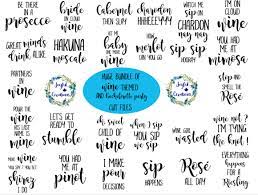 BE THERE
IN A
prosecco
bride
IN COULD
wine
Cabernet
THEN SLIM
chardon
HHHEEEYYY
WATCH ME
sip on
CHARDON
nay nay
I'M ON
CLOUD
wine
great minds
drink
ALIKE
HAKUNA
moscato
LET ME
baby
wine
HOW
merlot
CAN YOU GO
sip sip
hooray
YOU HAD
ME AT
mimosa
PARTNERS
IN
wine
HUGE BUNDLE OF
wine THEMED
AND bachelorette party
CUT FILES
Joyful
Creations
Joyful
Creations
STOP
AND
SMELL THE
Rosé
POUR THE
wine
HIS LAST
NAME IS
mine
LET'S GET
READY
TO
stumble
oh sweet
CHILD OF
wine
when I sip
YOU SIP
we sip
WINE GIRL
wasted
wine not?
I'M TYING
the knot!
shiraz
YOU HAD
ME AT
pinot
I MAKE
pour
DECISIONS
sip
sip
Rosé
ALL DAY
EVERYTHING
happens
FOR A
Riesling